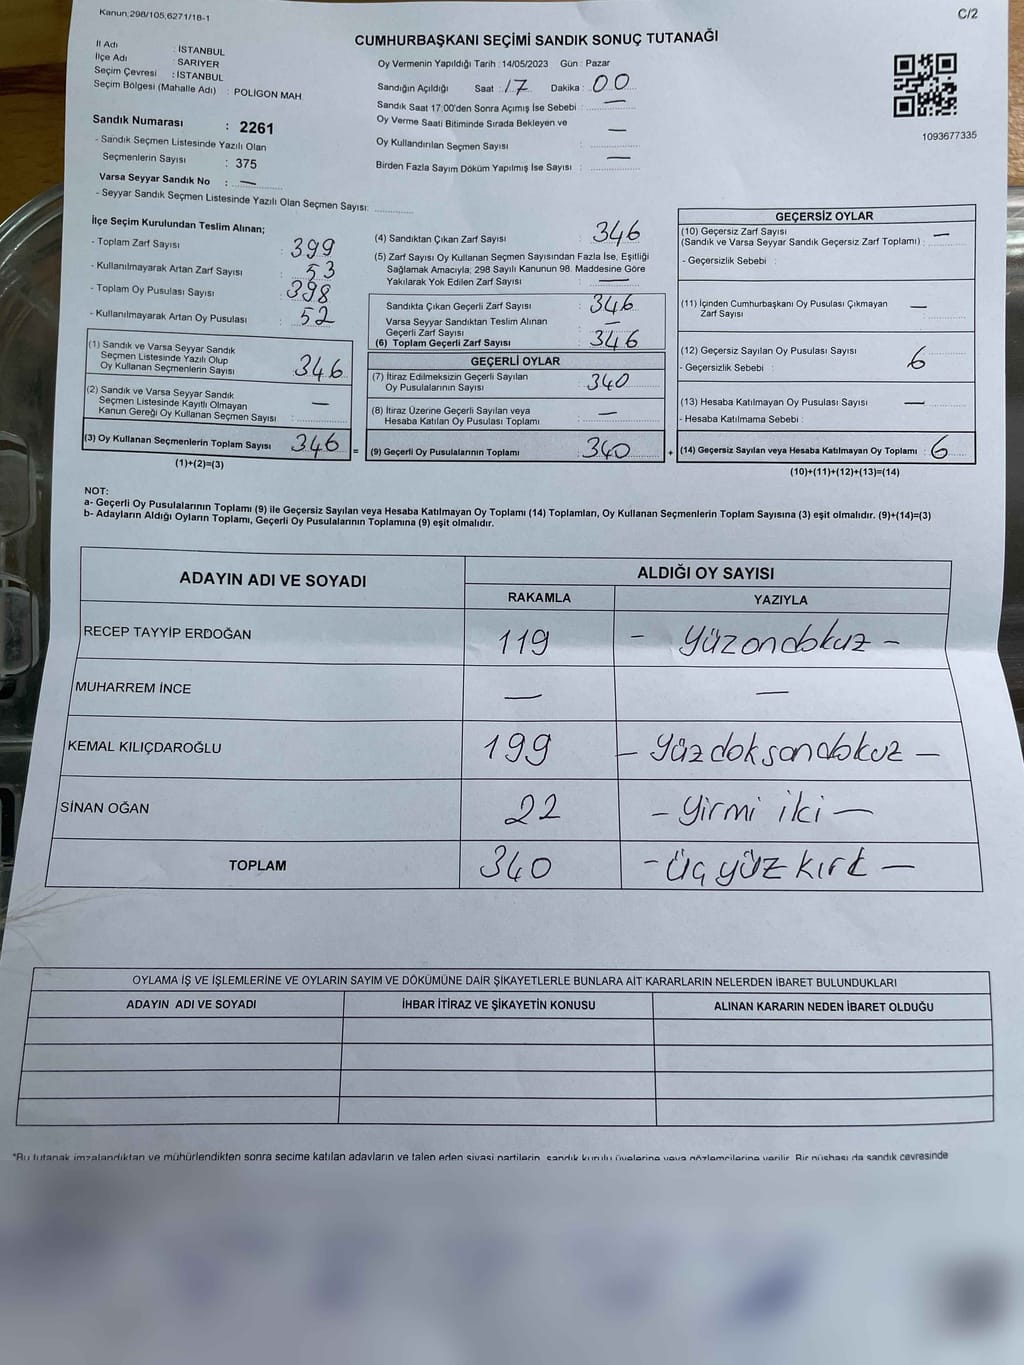 Kanun;298/105;6271/18-1
C/2
CUMHURBAŞKANI SEÇİMİ SANDIK SONUÇ TUTANAĞI
İl Adı : İSTANBUL
İlçe Adı : SARIYER
Seçim Çevresi : İSTANBUL
Seçim Bölgesi (Mahalle Adı) : POLİGON MAH.
Sandık Numarası : 2261
- Sandık Seçmen Listesinde Yazılı Olan
Seçmenlerin Sayısı : 375
Varsa Seyyar Sandık No : —
- Seyyar Sandık Seçmen Listesinde Yazılı Olan Seçmen Sayısı:
Oy Vermenin Yapıldığı Tarih : 14/05/2023 Gün : Pazar
Sandığın Açıldığı Saat : 17 Dakika : 00
Sandık Saat 17:00'den Sonra Açımış İse Sebebi : —
Oy Verme Saati Bitiminde Sırada Bekleyen ve
Oy Kullandırılan Seçmen Sayısı : —
Birden Fazla Sayım Döküm Yapılmış İse Sayısı : —
1093677335
İlçe Seçim Kurulundan Teslim Alınan;
- Toplam Zarf Sayısı : 399
- Kullanılmayarak Artan Zarf Sayısı : 53
- Toplam Oy Pusulası Sayısı : 398
- Kullanılmayarak Artan Oy Pusulası : 52
(1) Sandık ve Varsa Seyyar Sandık
Seçmen Listesinde Yazılı Olup
Oy Kullanan Seçmenlerin Sayısı : 346
(2) Sandık ve Varsa Seyyar Sandık
Seçmen Listesinde Kayıtlı Olmayan
Kanun Gereği Oy Kullanan Seçmen Sayısı : —
(3) Oy Kullanan Seçmenlerin Toplam Sayısı 346
(1)+(2)=(3)
(4) Sandıktan Çıkan Zarf Sayısı : 346
(5) Zarf Sayısı Oy Kullanan Seçmen Sayısından Fazla İse, Eşitliği
Sağlamak Amacıyla; 298 Sayılı Kanunun 98. Maddesine Göre
Yakılarak Yok Edilen Zarf Sayısı : —
Sandıkta Çıkan Geçerli Zarf Sayısı : 346
Varsa Seyyar Sandıktan Teslim Alınan
Geçerli Zarf Sayısı : —
(6) Toplam Geçerli Zarf Sayısı : 346
GEÇERLİ OYLAR
(7) İtiraz Edilmeksizin Geçerli Sayılan
Oy Pusulalarının Sayısı : 340
(8) İtiraz Üzerine Geçerli Sayılan veya
Hesaba Katılan Oy Pusulası Toplamı : —
= (9) Geçerli Oy Pusulalarının Toplamı : 340 +
GEÇERSİZ OYLAR
(10) Geçersiz Zarf Sayısı
(Sandık ve Varsa Seyyar Sandık Geçersiz Zarf Toplamı) : —
- Geçersizlik Sebebi :
(11) İçinden Cumhurbaşkanı Oy Pusulası Çıkmayan
Zarf Sayısı : —
(12) Geçersiz Sayılan Oy Pusulası Sayısı : 6
- Geçersizlik Sebebi :
(13) Hesaba Katılmayan Oy Pusulası Sayısı : —
- Hesaba Katılmama Sebebi :
(14) Geçersiz Sayılan veya Hesaba Katılmayan Oy Toplamı : 6
(10)+(11)+(12)+(13)=(14)
NOT:
a- Geçerli Oy Pusulalarının Toplamı (9) ile Geçersiz Sayılan veya Hesaba Katılmayan Oy Toplamı (14) Toplamları, Oy Kullanan Seçmenlerin Toplam Sayısına (3) eşit olmalıdır. (9)+(14)=(3)
b- Adayların Aldığı Oyların Toplamı, Geçerli Oy Pusulalarının Toplamına (9) eşit olmalıdır.
ADAYIN ADI VE SOYADI
ALDIĞI OY SAYISI
RAKAMLA YAZIYLA
RECEP TAYYİP ERDOĞAN 119 - Yüzondokuz -
MUHARREM İNCE — —
KEMAL KILIÇDAROĞLU 199 - Yüzdoksandokuz -
SİNAN OĞAN 22 - Yirmi iki -
TOPLAM 340 - Üçyüz kırk -
OYLAMA İŞ VE İŞLEMLERİNE VE OYLARIN SAYIM VE DÖKÜMÜNE DAİR ŞİKAYETLERLE BUNLARA AİT KARARLARIN NELERDEN İBARET BULUNDUKLARI
ADAYIN ADI VE SOYADI İHBAR İTİRAZ VE ŞİKAYETİN KONUSU ALINAN KARARIN NEDEN İBARET OLDUĞU
*Bu tutanak imzalandıktan ve mühürlendikten sonra seçime katılan adayların ve talep eden siyasi partilerin, sandık kurulu üyelerine veya gözlemcilerine verilir. Bir nüshası da sandık çevresinde